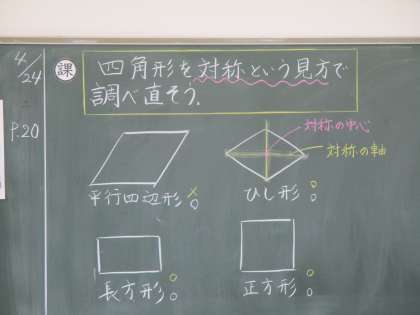 4/24
P.20
課
四角形を対称という見方で
調べ直そう.
平行四辺形 ×○
ひし形 ○○
対称の中心
対称の軸
長方形 ○○
正方形 ○○